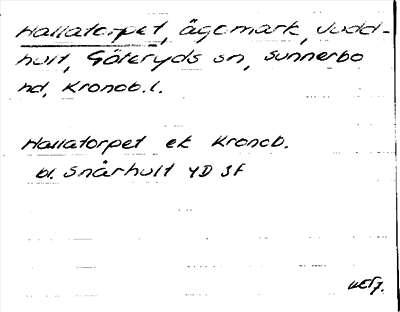 Hallatorpet, ägomark, Judd-
hult, Göteryds sn, Sunnerbo
hd, Kronob. l.
Hallatorpet ek Kronob.
bl. Snårhult 4D 3f